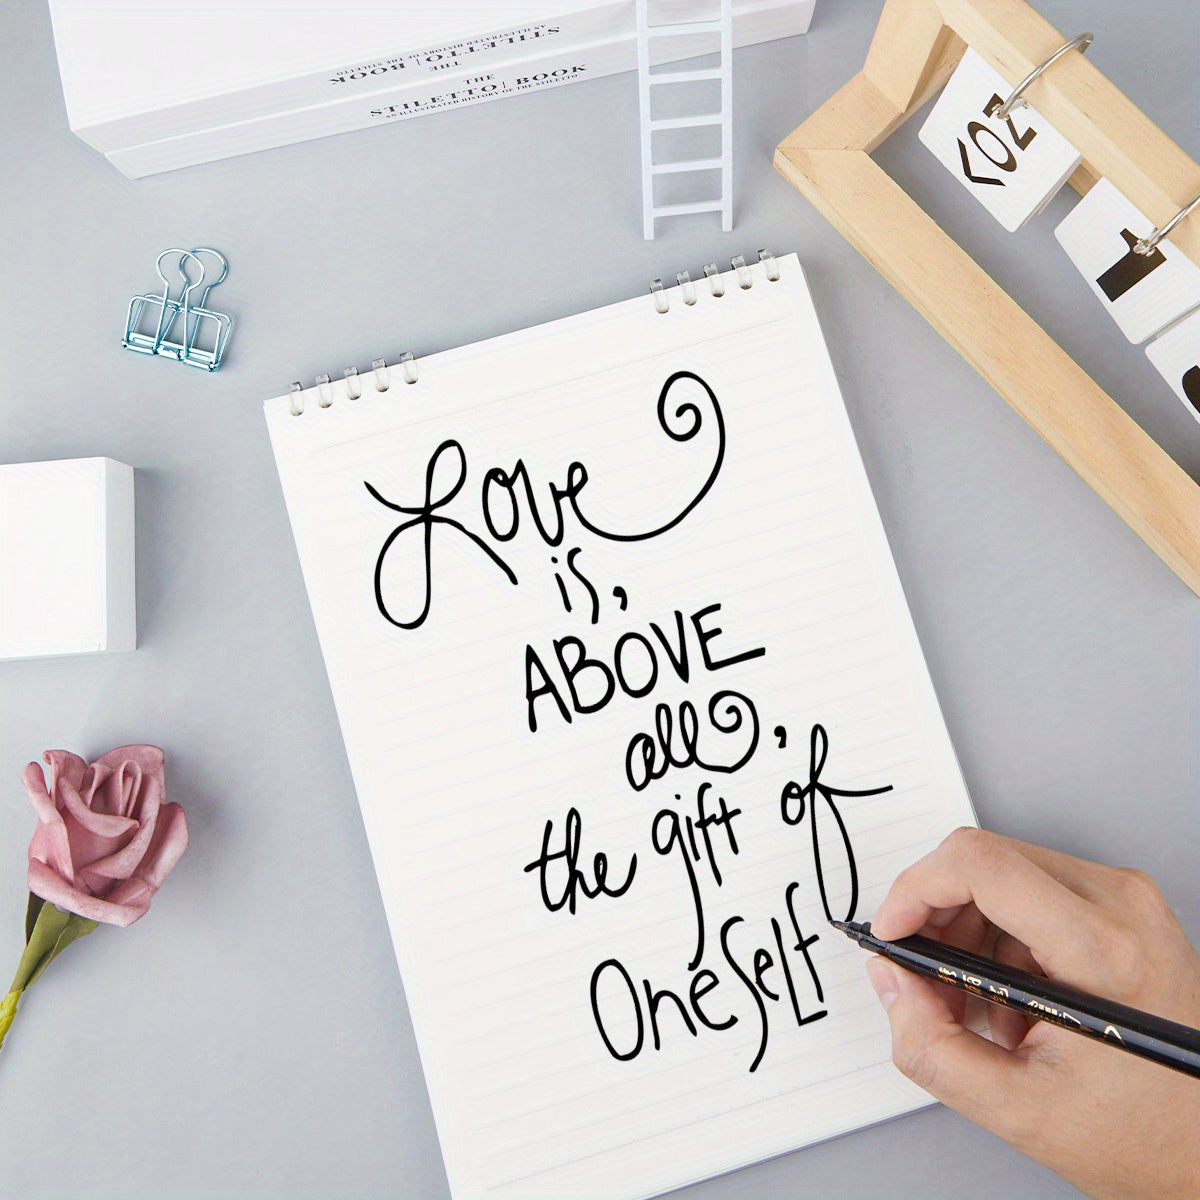 THE
STILETTO BOOK
AN ILLUSTRATED HISTORY OF THE STILETTO
THE
STILETTO BOOK
AN ILLUSTRATED HISTORY OF THE STILETTO
1
Love
is,
ABOVE
all,
the gift of
OneSelf